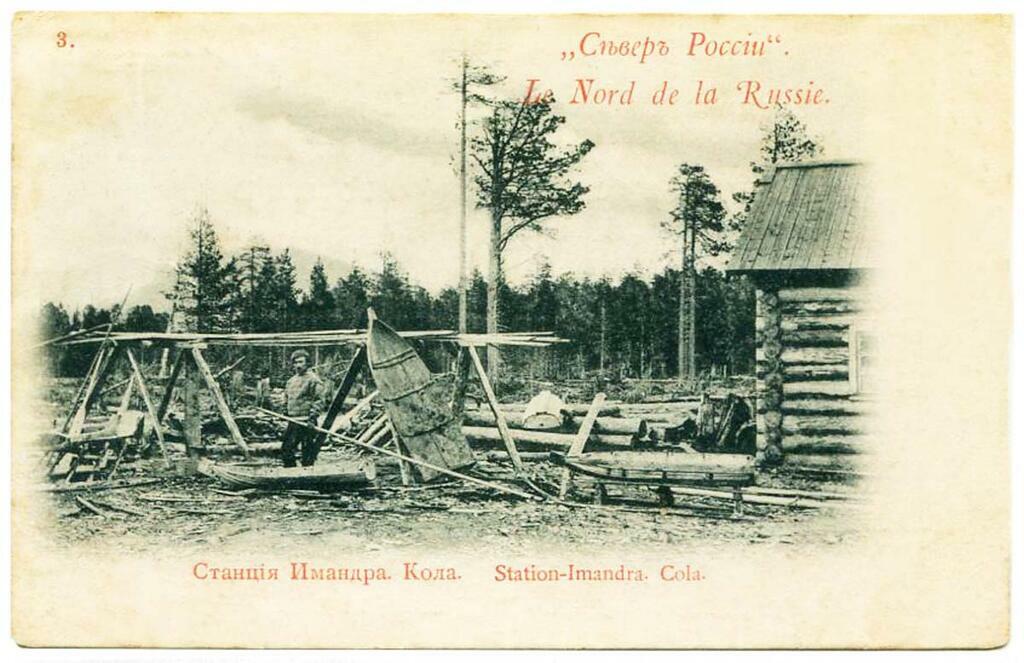 3.
„Сѣверъ Россіи“.
Le Nord de la Russie.
Станція Имандра. Кола. Station-Imandra. Cola.